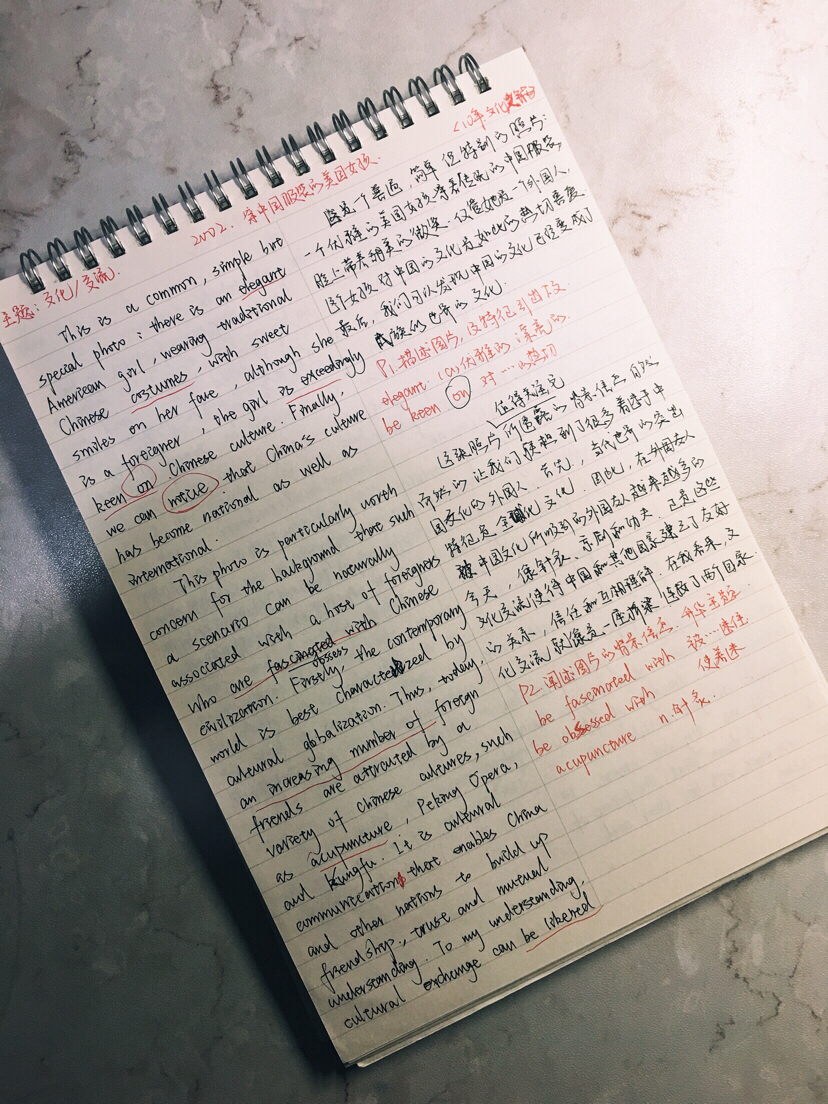 <10年文化
2002. 穿中国服装的美国女孩.
主题: 文化/交流.
This is a common, simple but
special photo: there is an elegant
American girl, wearing traditional
Chinese costumes, with sweet
smiles on her face, although she
is a foreigner, the girl is exceedingly
keen on Chinese culture. Finally,
we can notice that China's culture
has become national as well as
international.
This photo is particularly worth
concern for the background that such
a scenario can be naturally
associated with a host of foreigners
who are fascinated with Chinese
obsess
civilization. Firstly, the contemporary
world is best characterized by
cultural globalization. Thus, today,
an increasing number of foreign
friends are attracted by a
variety of Chinese cultures, such
as acupuncture, Peking Opera,
and Kungfu. It is cultural
communication that enables China
and other nations to build up
friendship, trust and mutual
understanding. To my understanding,
cultural exchange can be likened
这是一个普通, 简单但特别的照片:
一个优雅的美国女孩穿着传统的中国服装,
脸上带着甜美的微笑. 仅管她是一个外国人,
这个女孩对中国的文化有如此的热切喜爱.
最后, 我们可以发现中国的文化已经变成了
民族的世界的文化.
P1. 描述图片, 反特征引出下文.
elegant (a) 优雅的; 漂亮的
be keen on 对…的热切
值得关注完
这张照片所透露的背景信息, 自然
而然的让我们联想到了很多着迷于中
国文化的外国人. 首先, 当代世界的突出
特征是全球化文化. 因此, 在外国友人
被中国文化所吸引的外国友人越来越多的
今天, 像针灸, 京剧和功夫. 正是这些
文化交流使得中国和其他国家建立了友好
的关系, 信任和互相理解. 在我看来, 文
化交流就像是一座桥梁连接了两个国家.
P2. 阐述图片的背景信息, 升华主题
be fascinated with 被…迷住
be obsessed with 使着迷
acupuncture n. 针灸.